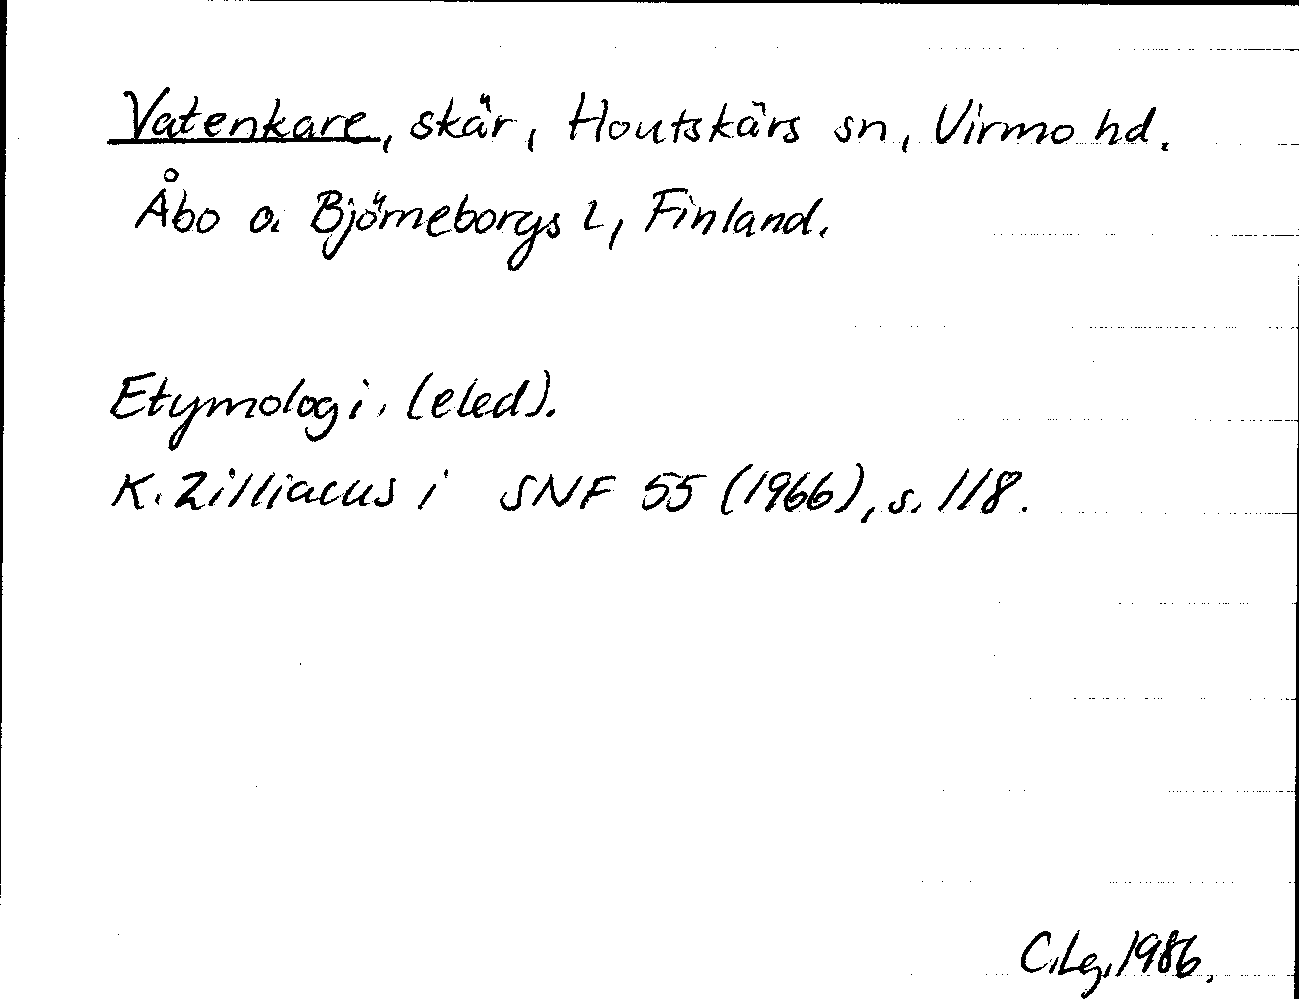 Vatenkare, skär, Houtskärs sn, Virmo hd.
Åbo o. Björneborgs L, Finland.
Etymologi. (eled).
K. Zilliacus i SNF 55 (1966), s. 118.
C.Lg. 1986.